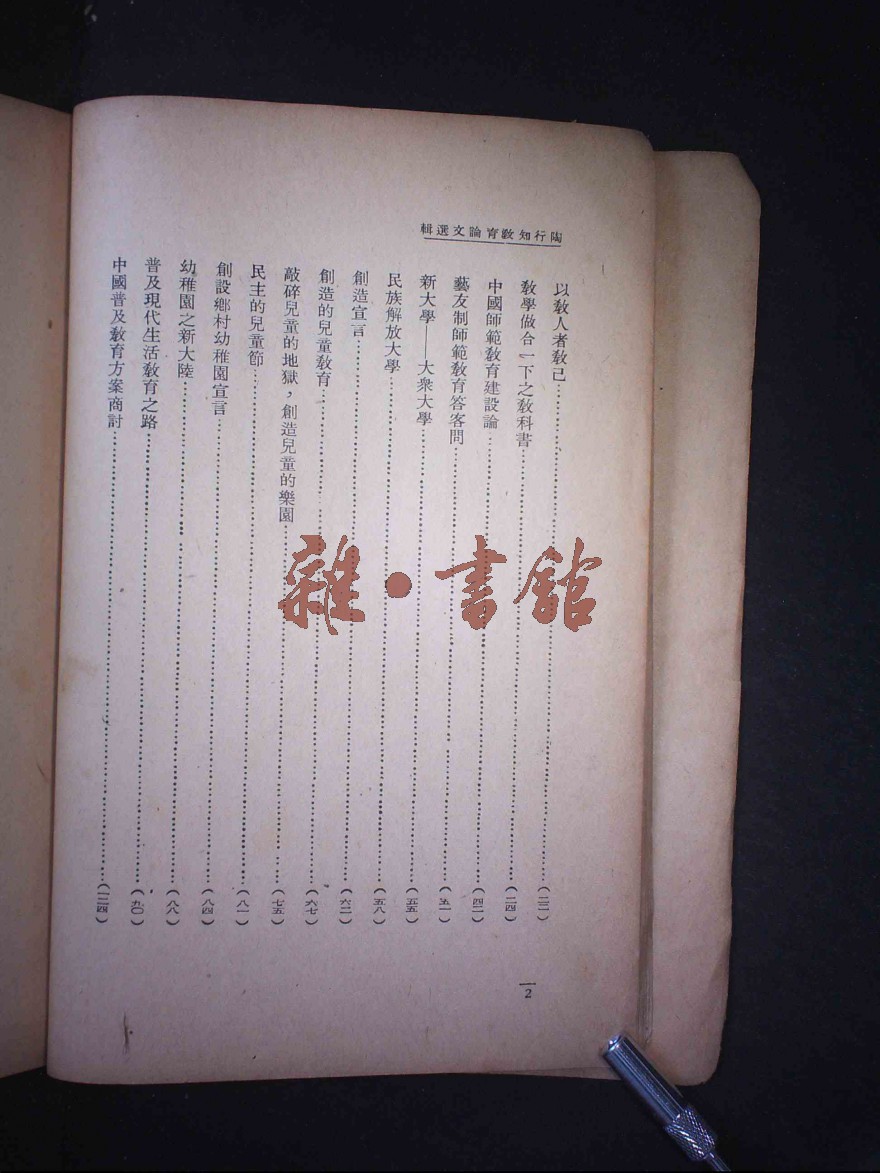 陶行知教育論文選輯
以教人者教己……（二二）
教學做合一下之教科書……（二四）
中國師範教育建設論……（四二）
藝友制師範教育答客問……（五一）
新大學——大衆大學……（五五）
民族解放大學……（五八）
創造宣言……（六二）
創造的兒童教育……（六七）
敲碎兒童的地獄，創造兒童的樂園……（七五）
民主的兒童節……（八一）
創設鄉村幼稚園宣言……（八四）
幼稚園之新大陸……（八八）
普及現代生活教育之路……（九〇）
中國普及教育方案商討……（一二四）
2
雜•書館